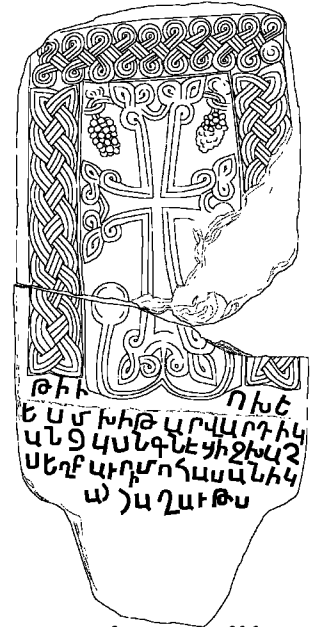 ԹԻՒ ՈԽԵ
ԵՍ ՄԽԻԹԱՐՎԱՐԴԻԿ
ԱՆՑ ԿԱՆԳՆԵՑԻԶԽԱՉ
ՍԵՂԲԱՒՐԻՄՈՀԱՍԱՆԻԿ
Ա) ՅԱՂԱՒԹՍ